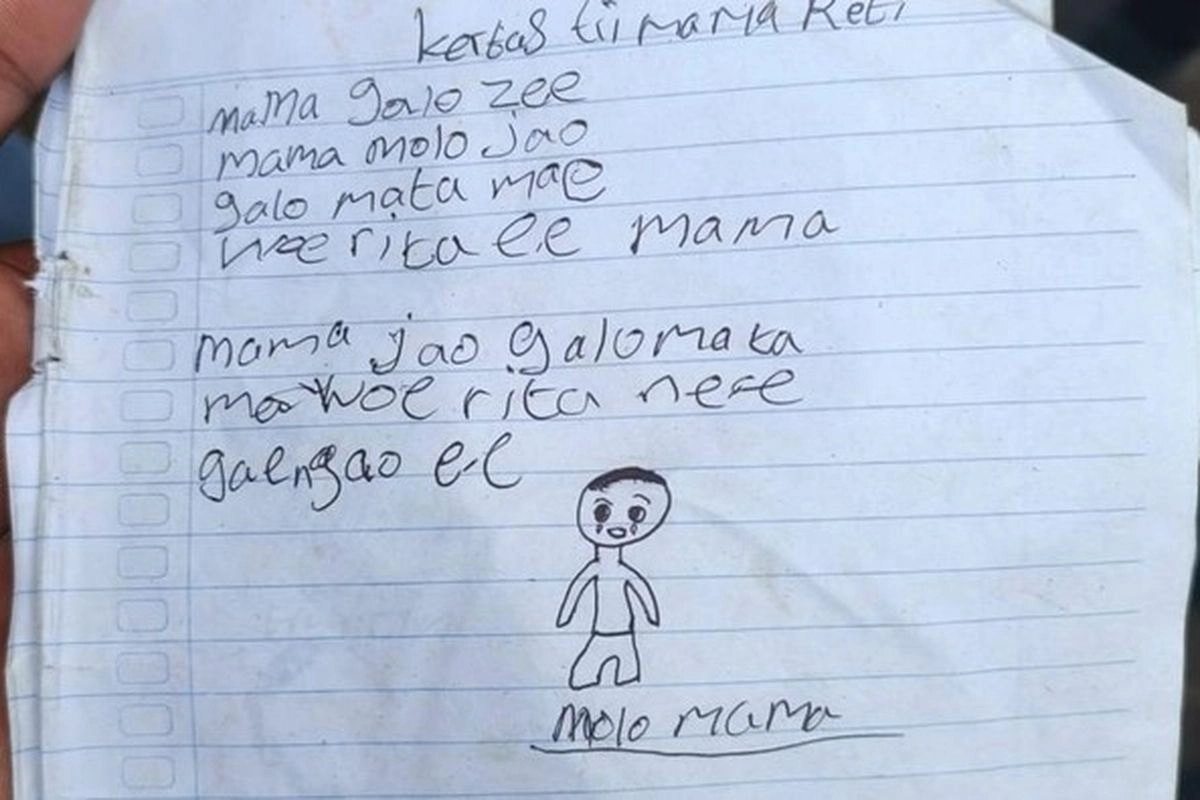 kertas tii mama Reti
mama galo zee
mama molo jao
galo mata mae
woe rita ee mama
mama jao galo mata
mae woe rita ne ee
gaengao ee
molo mama